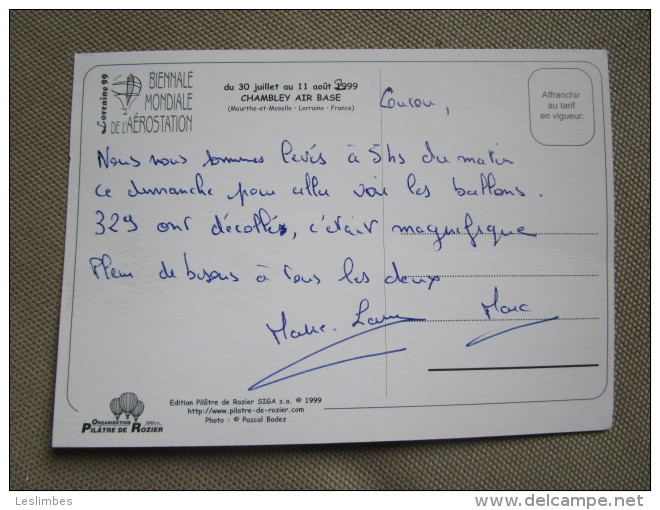 Lorraine 99
BIENNALE
MONDIALE
DE L'AÉROSTATION
du 30 juillet au 11 août 1999
CHAMBLEY AIR BASE
(Meurthe-et-Moselle - Lorraine - France)
Affranchir
au tarif
en vigueur.
Coucou,
Nous nous sommes levés à 5hs du matin
ce dimanche pour aller voir les ballons.
329 ont décollés, c'était magnifique
Plein de bisous à tous les deux
Marie-Laure Marc
ORGANISATION
PILÂTRE DE ROZIER
Edition Pilâtre de Rozier SIGA s.a. © 1999
http://www.pilatre-de-rozier.com
Photo : © Pascal Bodez
Leslimbes
delcampe.net